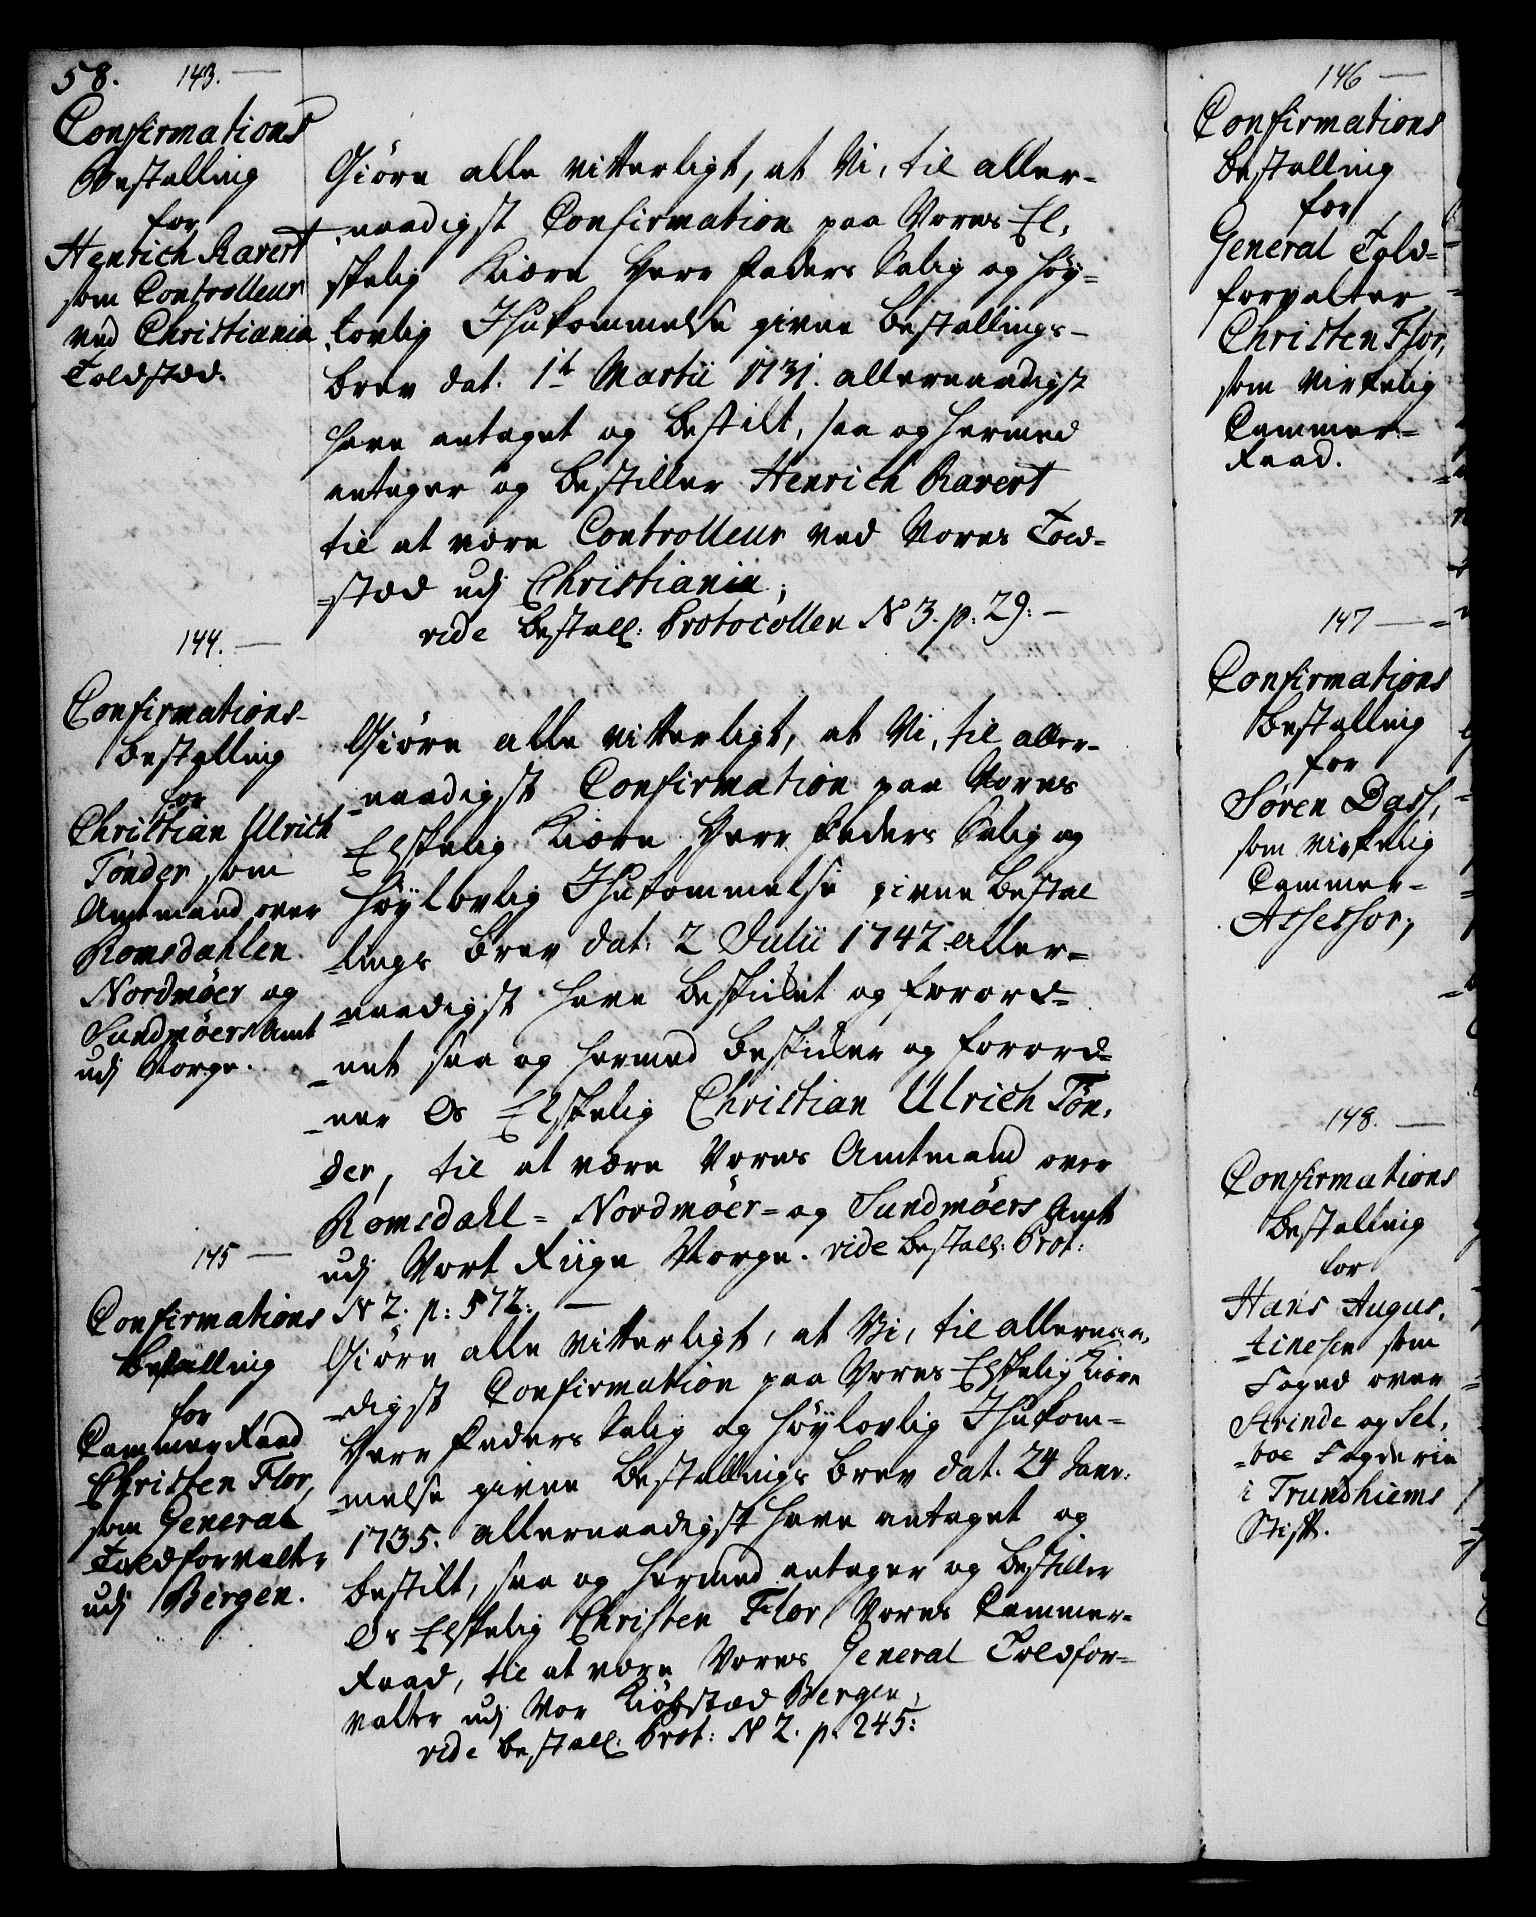 58.
143. —
Confirmations
Bestalling
for
Henrich Ravert
som Controlleur
ved Christiania
Toldstæd.
Giöre alle vitterligt, at Vi, til aller-
naadigst Confirmation paa Vores El,
skelig Kiære Herr Faders Salig og Höy-
lovlig Ihukommelse givne Bestallings-
brev dat. 1t Martii 1731. allernaadigst
have antaget og bestilt, saa og hermed
antager og bestiller Henrich Ravert
til at være Controlleur ved Vores Told-
=stæd udj Christiania;
vide Bestall: Protocollen No 3. p: 29: —
144. —
Confirmations-
bestalling
for
Christian Ulrich
Tönder som
Amtmand over
Romsdahlen
Nordmöer og
Sundmöers Amt
udj Norge.
Giöre alle vitterligt, at Vi, til aller-
=naadigst Confirmation paa Vores
Elskelig Kiære Herr Faders Salig og
Höylovlig Ihukommelse givne Bestal
=lings Brev dat: 2 Julii 1742 aller-
=naadigst have beskikket og forord-
=net saa og hermed beskikker og forord-
=ner Os Elskelig Christian Ulrich Tön,
der, til at være Vores Amtmand over
Romsdahl= Nordmöer= og Sundmöers Amt
udj Vort Riige Norge. vide Bestall: Prot:
No 2. p: 572: —
145 —
Confirmations
Bestalling
for
Cammer Raad
Christen Flor,
som General
Toldforvalter
udj Bergen.
Giöre alle vitterligt, at Vi, til allernaa,
=digst Confirmation paa Vores Elskelig Kiære
Herr Faders Salig og Höylovlig Ihukom=
=melse givne Bestallings Brev dat. 24 Janr:
1735. allernaadigst have antaget og
bestilt, saa og hermed antager og bestiller
Os Elskelig Christen Flor, Vores Cammer-
Raad, til at være Vores General Toldfor-
valter udj Vor Kiöbstæd Bergen,
vide Bestall: Prot: No 2. p. 245:
146 —
Confirmations
Bestalling
for
General Told=
forvalter
Christen Flor,
som Virkelig
Cammer=
Raad.
147 —
Confirmations
Bestalling
for
Sören Dass,
som Virkelig
Cammer-
Assessor;
148. —
Confirmations
Bestalling
for
Hans Augus,
=tinesen som
Foged over
Strinde og Sel,
=boe Fogderie
i Trundhiems
Stift.